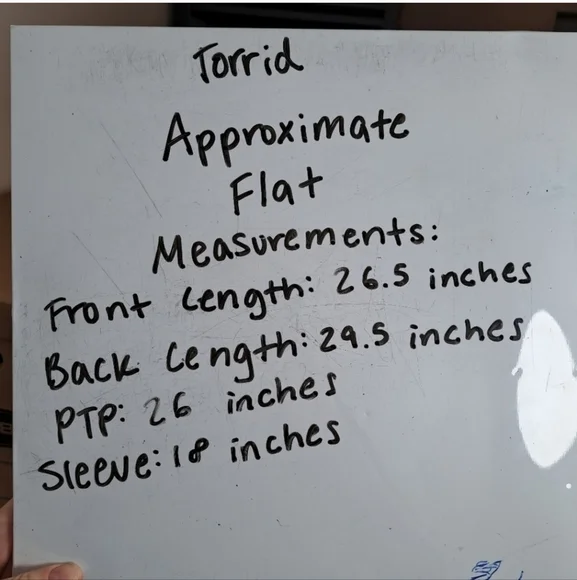 Torrid
Approximate
Flat
Measurements:
Front Length: 26.5 inches
Back Length: 29.5 inches
PTP: 26 inches
Sleeve: 18 inches